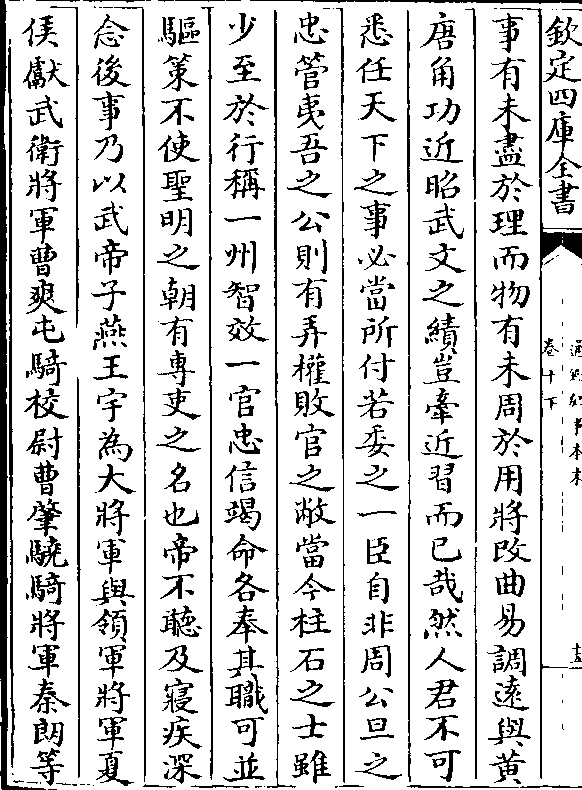 欽定四庫全書
卷十下
事有未盡於理而物有未周於用將改曲易調遠與黃
唐角功近昭武文之績豈牽近習而已哉然人君不可
悉任天下之事必當所付若委之一臣自非周公旦之
忠管夷吾之公則有弄權敗官之敝當今柱石之士雖
少至於行稱一州智效一官忠信竭命各奉其職可並
驅策不使聖明之朝有專吏之名也帝不聽及寢疾深
念後事乃以武帝子燕王宇為大將軍與領軍將軍夏
侯獻武衛將軍曹爽屯騎校尉曹肇驍騎將軍秦朗等